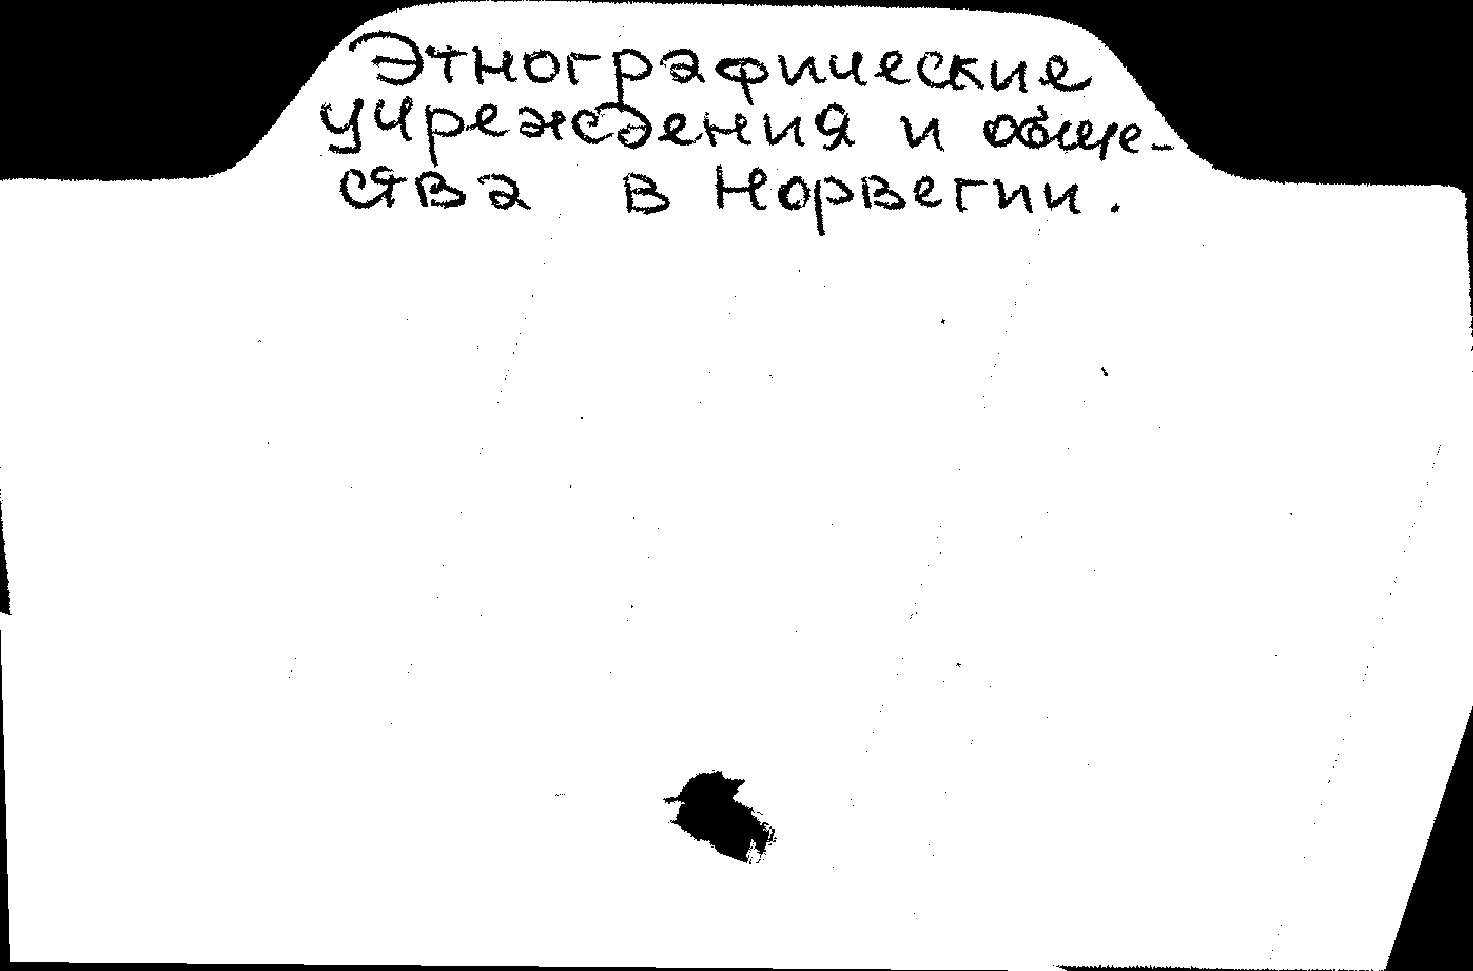 Этнографические
учреждения и обще-
ства в Норвегии.